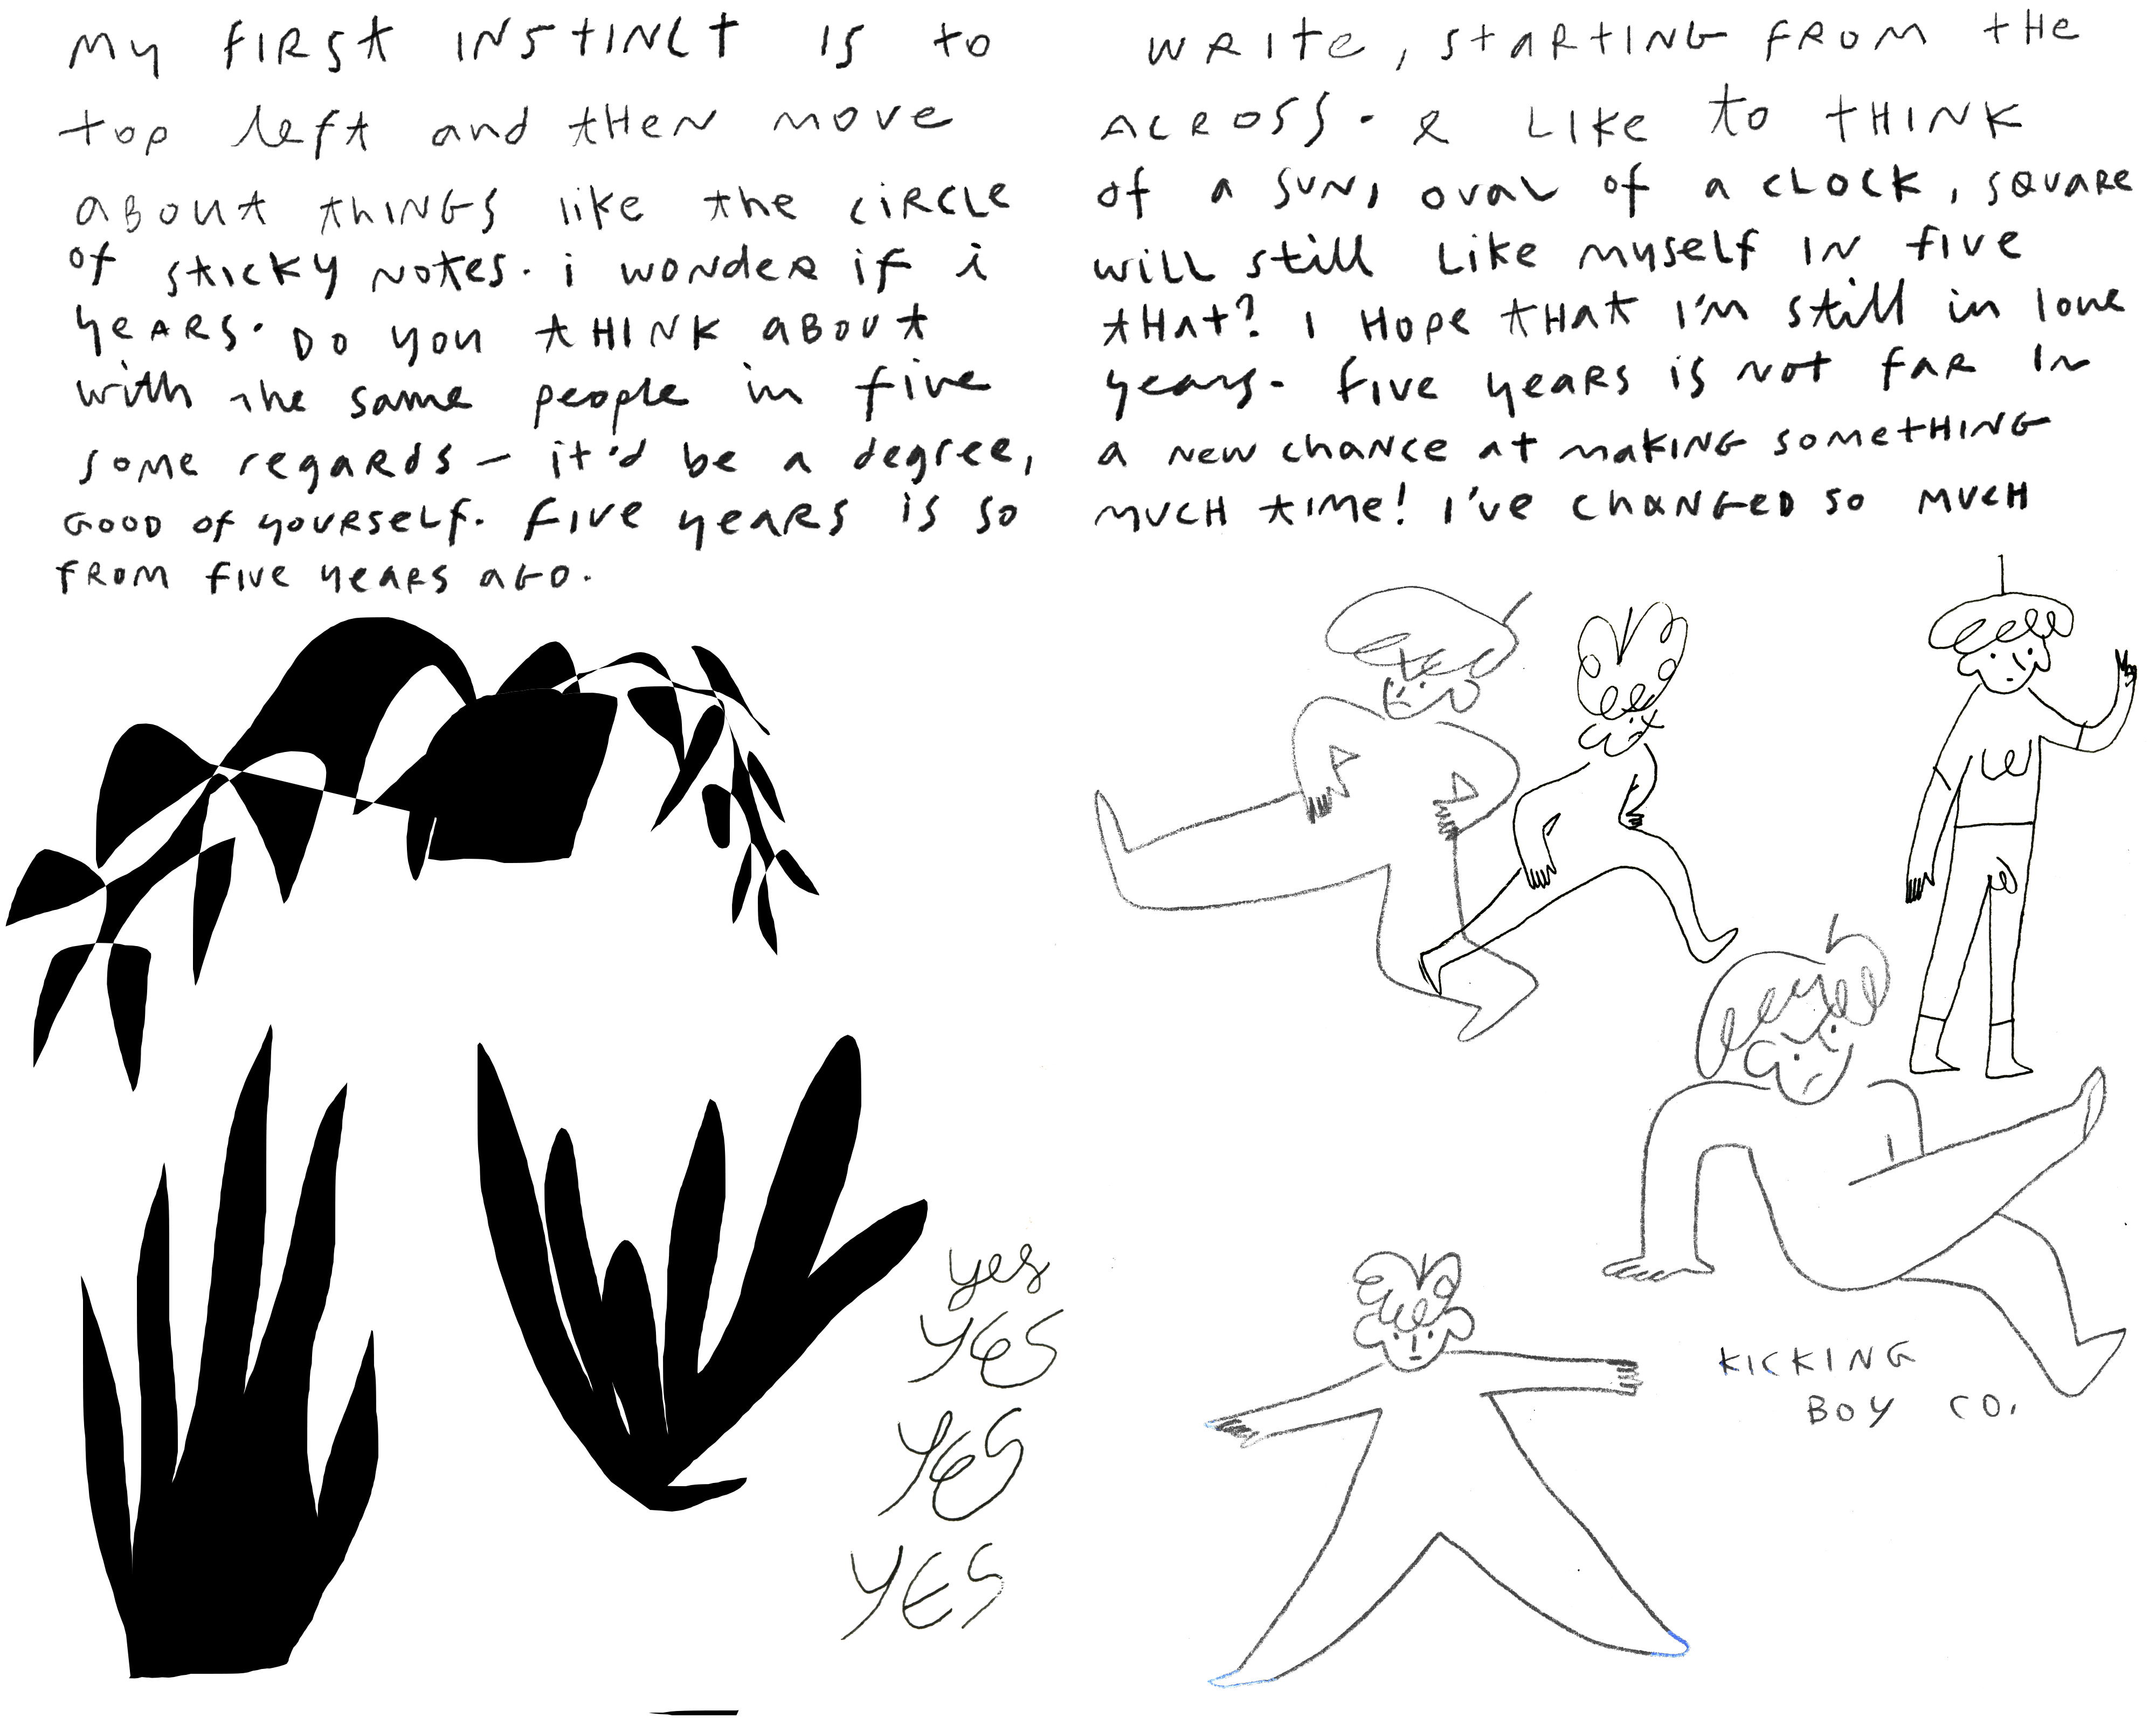 My FIRST INSTINCT IS to WRITe, STARTING FROM THE
top left and tHeN move ACROSS. & LIKe to THINK
ABOUT thINGS like the CIRCLe of a SUN, oval of a CLOCK, SQUARe
of StICKy NoteS. i wonder if i will still Like myself IN five
yeARS. Do you tHINK ABOUT tHAt? I Hope tHAt I'm still in love
with the same people in five years. five yeARS is not faR IN
some regards - it'd be a degree, a New chaNce at makING sometHING
GOOD of yourself. five yeARS is so MUCH tIMe! I've cHaNGeD so MUCH
FROM five yeARS AGO.
yes
YES
YES
YES
KICKING
BOY CO.